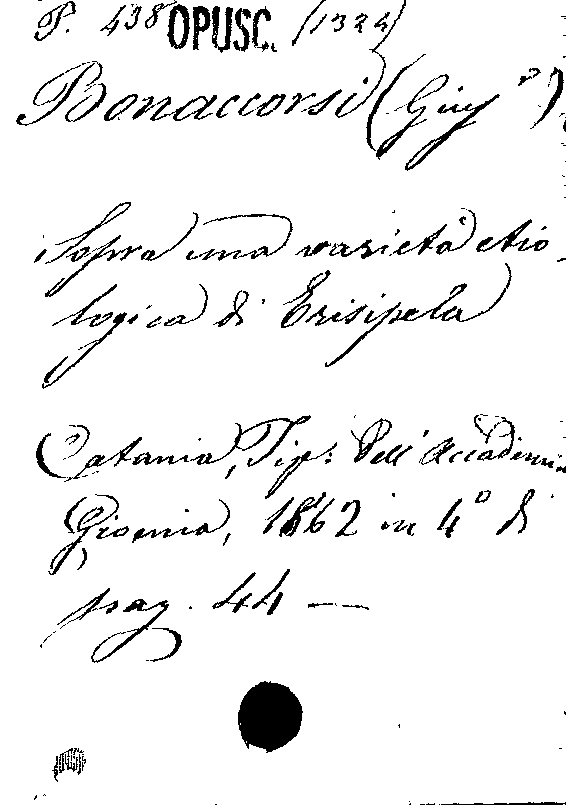 P. 438 OPUSC. (1324)
Bonaccorsi (Giuse)
Sopra una varietà etio-
logica di Erisipela
Catania, Tip: Dell' Accademia
Gioenia, 1862 in 4° di
pag. 44 —